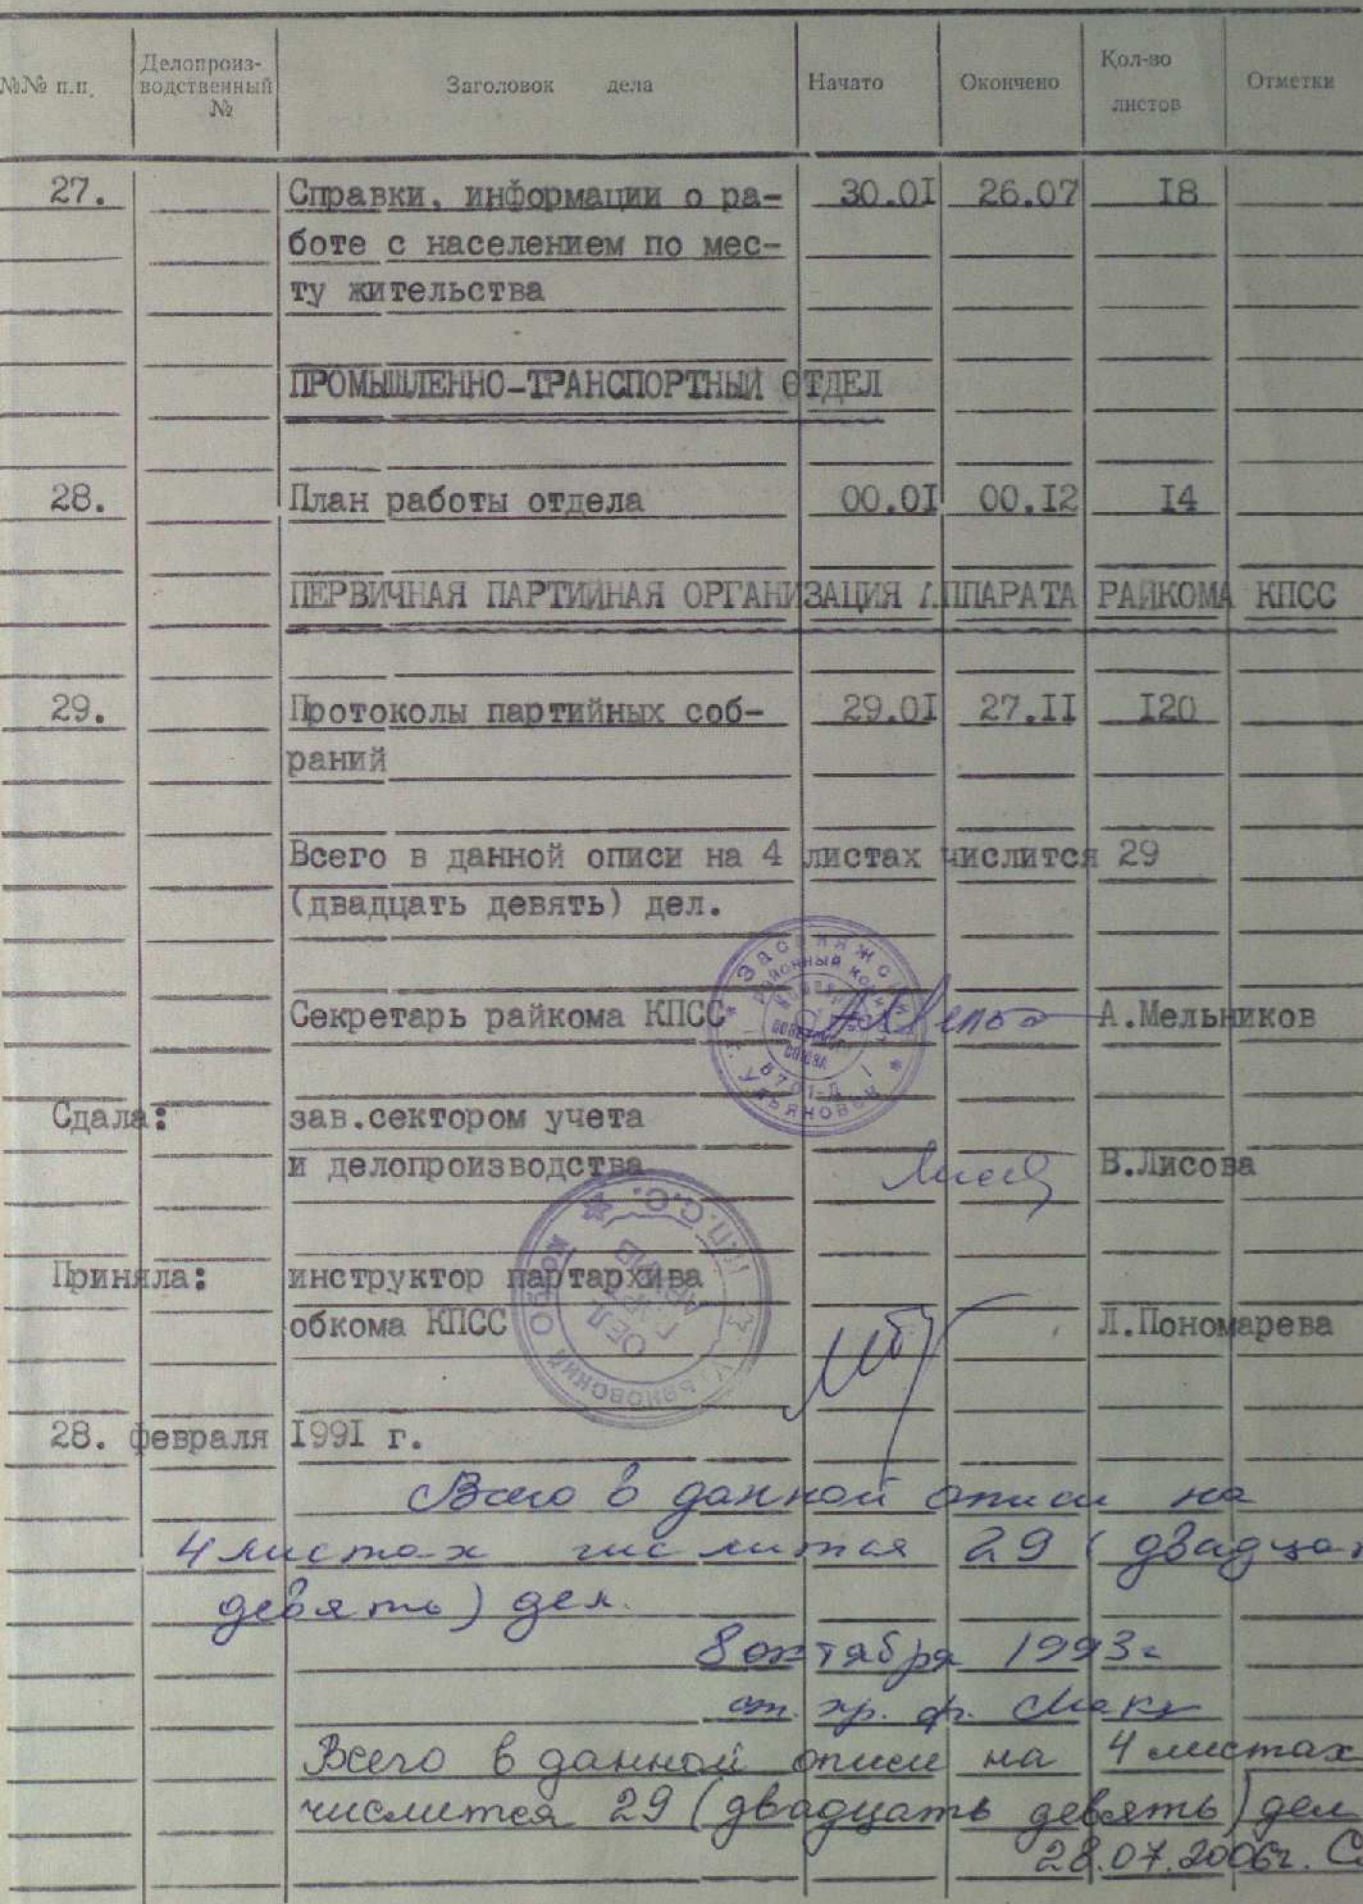 №№ п.п. Делопроиз-водственный № Заголовок дела Начато Окончено Кол-во листов Отметки
27. Справки, информации о ра- 30.0I 26.07 I8
боте с населением по мес-
ту жительства
ПРОМЫШЛЕННО-ТРАНСПОРТНЫЙ ОТДЕЛ
28. План работы отдела 00.0I 00.I2 I4
ПЕРВИЧНАЯ ПАРТИЙНАЯ ОРГАНИЗАЦИЯ АППАРАТА РАЙКОМА КПСС
29. Протоколы партийных соб- 29.0I 27.II I20
раний
Всего в данной описи на 4 листах числится 29
(двадцать девять) дел.
Секретарь райкома КПСС А.Мельников
Сдала: зав.сектором учета
и делопроизводства В.Лисова
Приняла: инструктор партархива
обкома КПСС Л.Пономарева
28. февраля I99I г.
Всего в данной описи на
4 листах числится 29 (двадцат
девять) дел.
8 октября 1993г
ст. хр. ф.
Всего в данной описи на 4 листах
числится 29 (двадцать девять) дел
28.07.2006г.